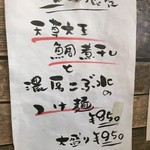 天草大王
鯛煮干し
と
濃厚こぶ水の
つけ麺
¥950
大盛り¥950